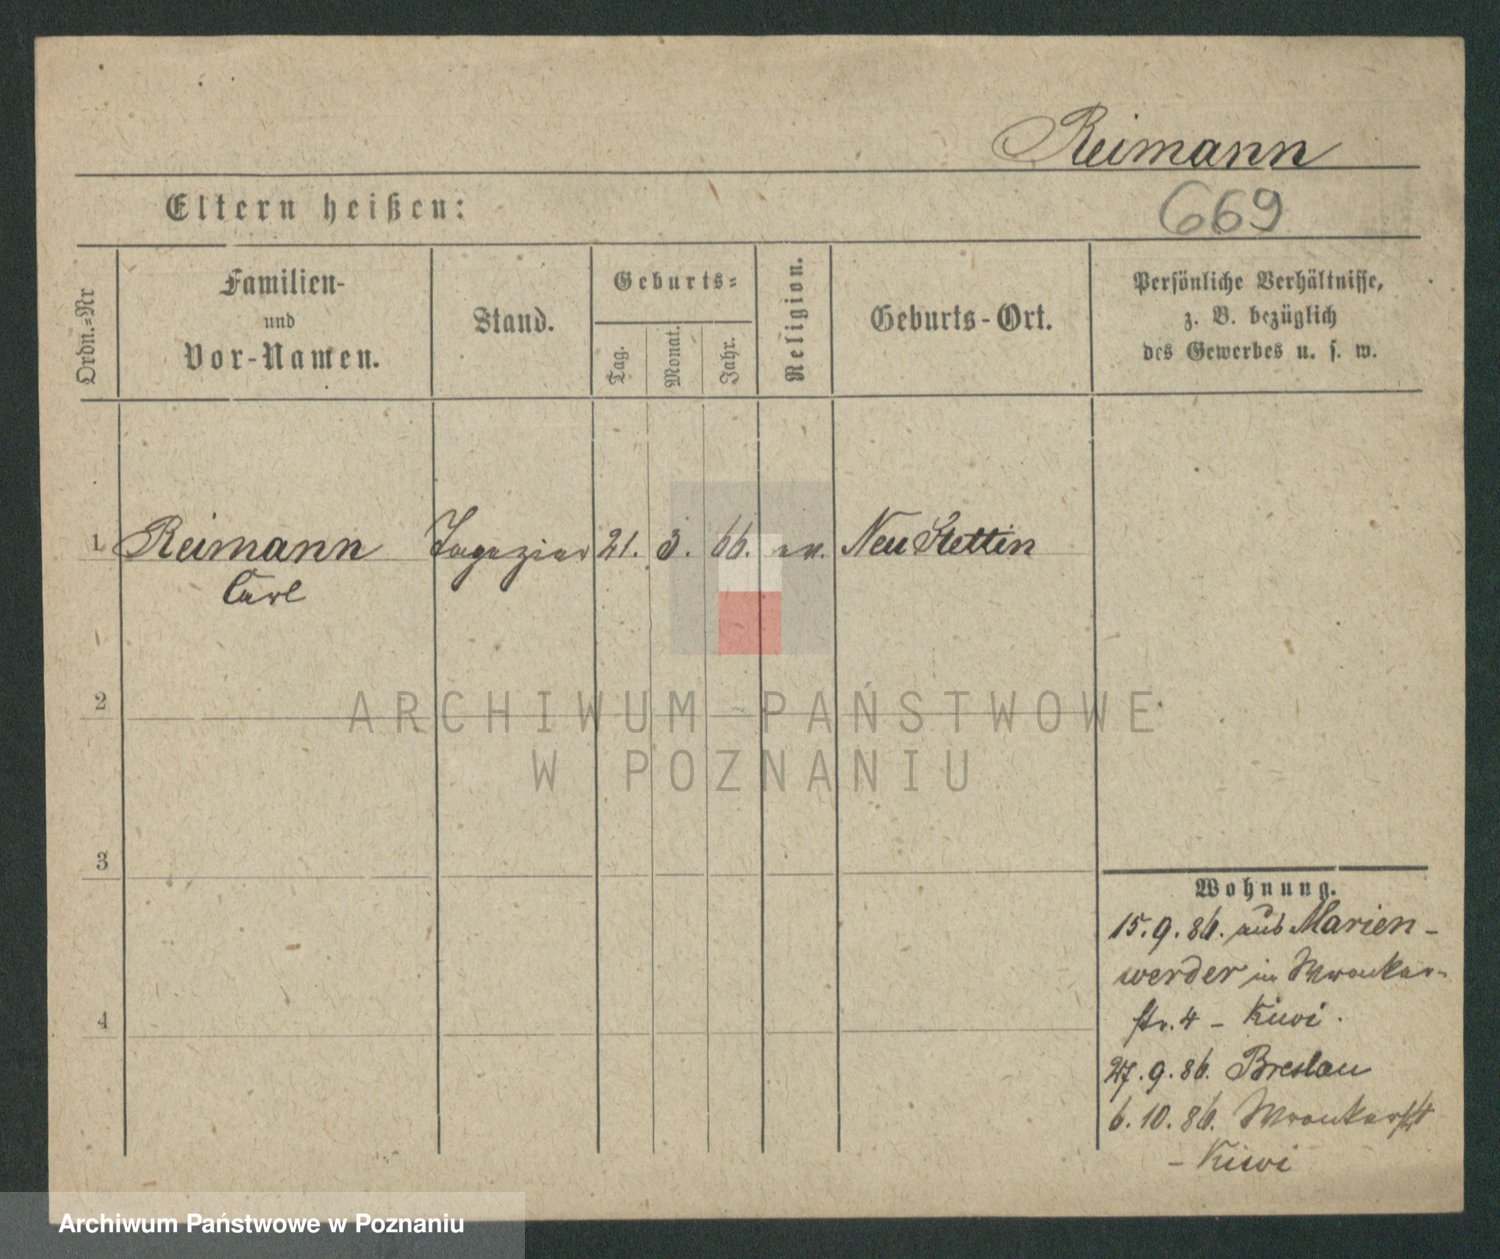 Reimann
Eltern heißen:
669
Ordn.=Nr
Familien-
und
Vor-Namen.
Stand.
Geburts=
Tag.
Monat.
Jahr.
Religion.
Geburts-Ort.
Persönliche Verhältnisse,
z. B. bezüglich
des Gewerbes u. s. w.
1 Reimann 21. 3. 66. ev. Neu Stettin
Carl
2
ARCHIWUM PAŃSTWOWE
W POZNANIU
3
Wohnung.
15. 9. 86. aus Marien-
werder in Wronker-
str. 4 - Kiwi.
4
27. 9. 86. Breslau
6. 10. 86. Wronkerst 4
- Kiwi
Archiwum Państwowe w Poznaniu